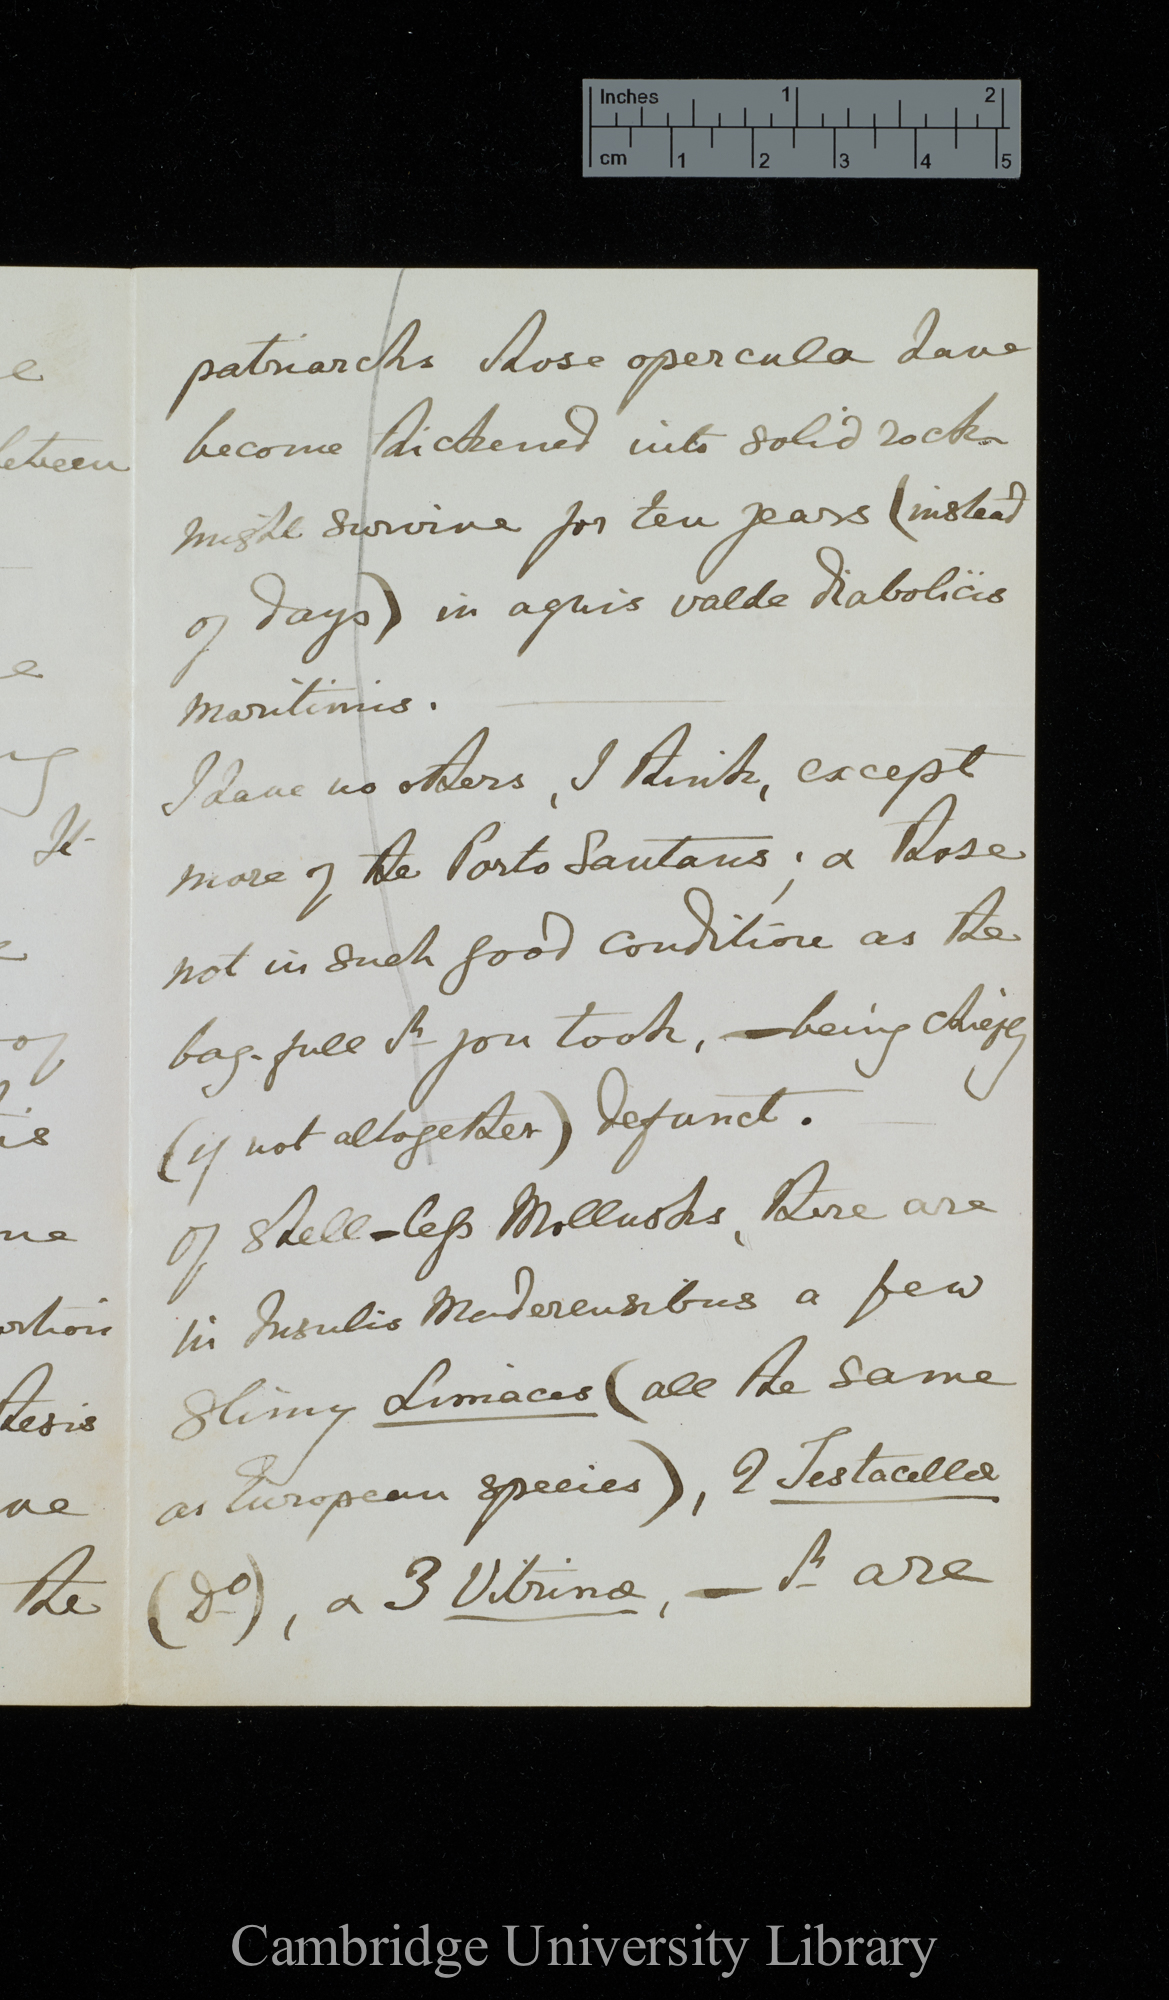 Inches 1 2
cm 1 2 3 4 5
patriarchs whose opercula have
become thickened into solid rock
might survive for ten years (instead
of days) in aquis valde diabolicis
maritimis.
I have no others, I think, except
more of the Porto Santans; & those
not in such good condition as the
bag-full wh you took, — being chiefly
(if not altogether) defunct.
Of shell-less Mollusks, there are
in Insulis Maderensibus a few
slimy Limaces (all the same
as European species), 2 Testacellæ
(Do), & 3 Vitrinæ, — wh are
between
It
of
is
the
Cambridge University Library